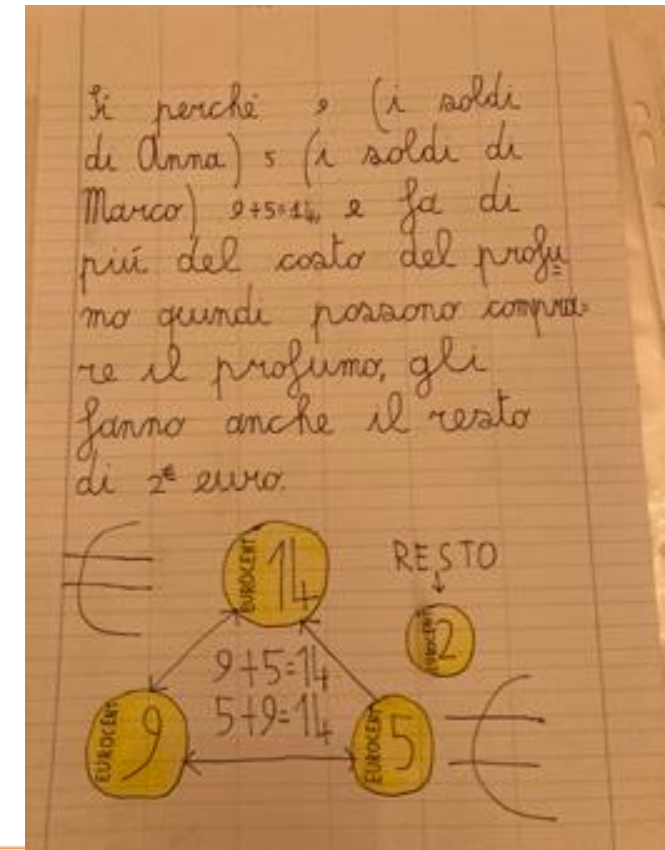 Si perché 9 (i soldi
di Anna) 5 (i soldi di
Marco) 9+5=14, e fa di
piú del costo del profu=
mo quindi possono compra=
re il profumo, gli
fanno anche il resto
di 2€ euro.
EUROCENT 14
RESTO
EUROCENT 2
9+5=14
5+9=14
EUROCENT 9
EUROCENT 5
€
€